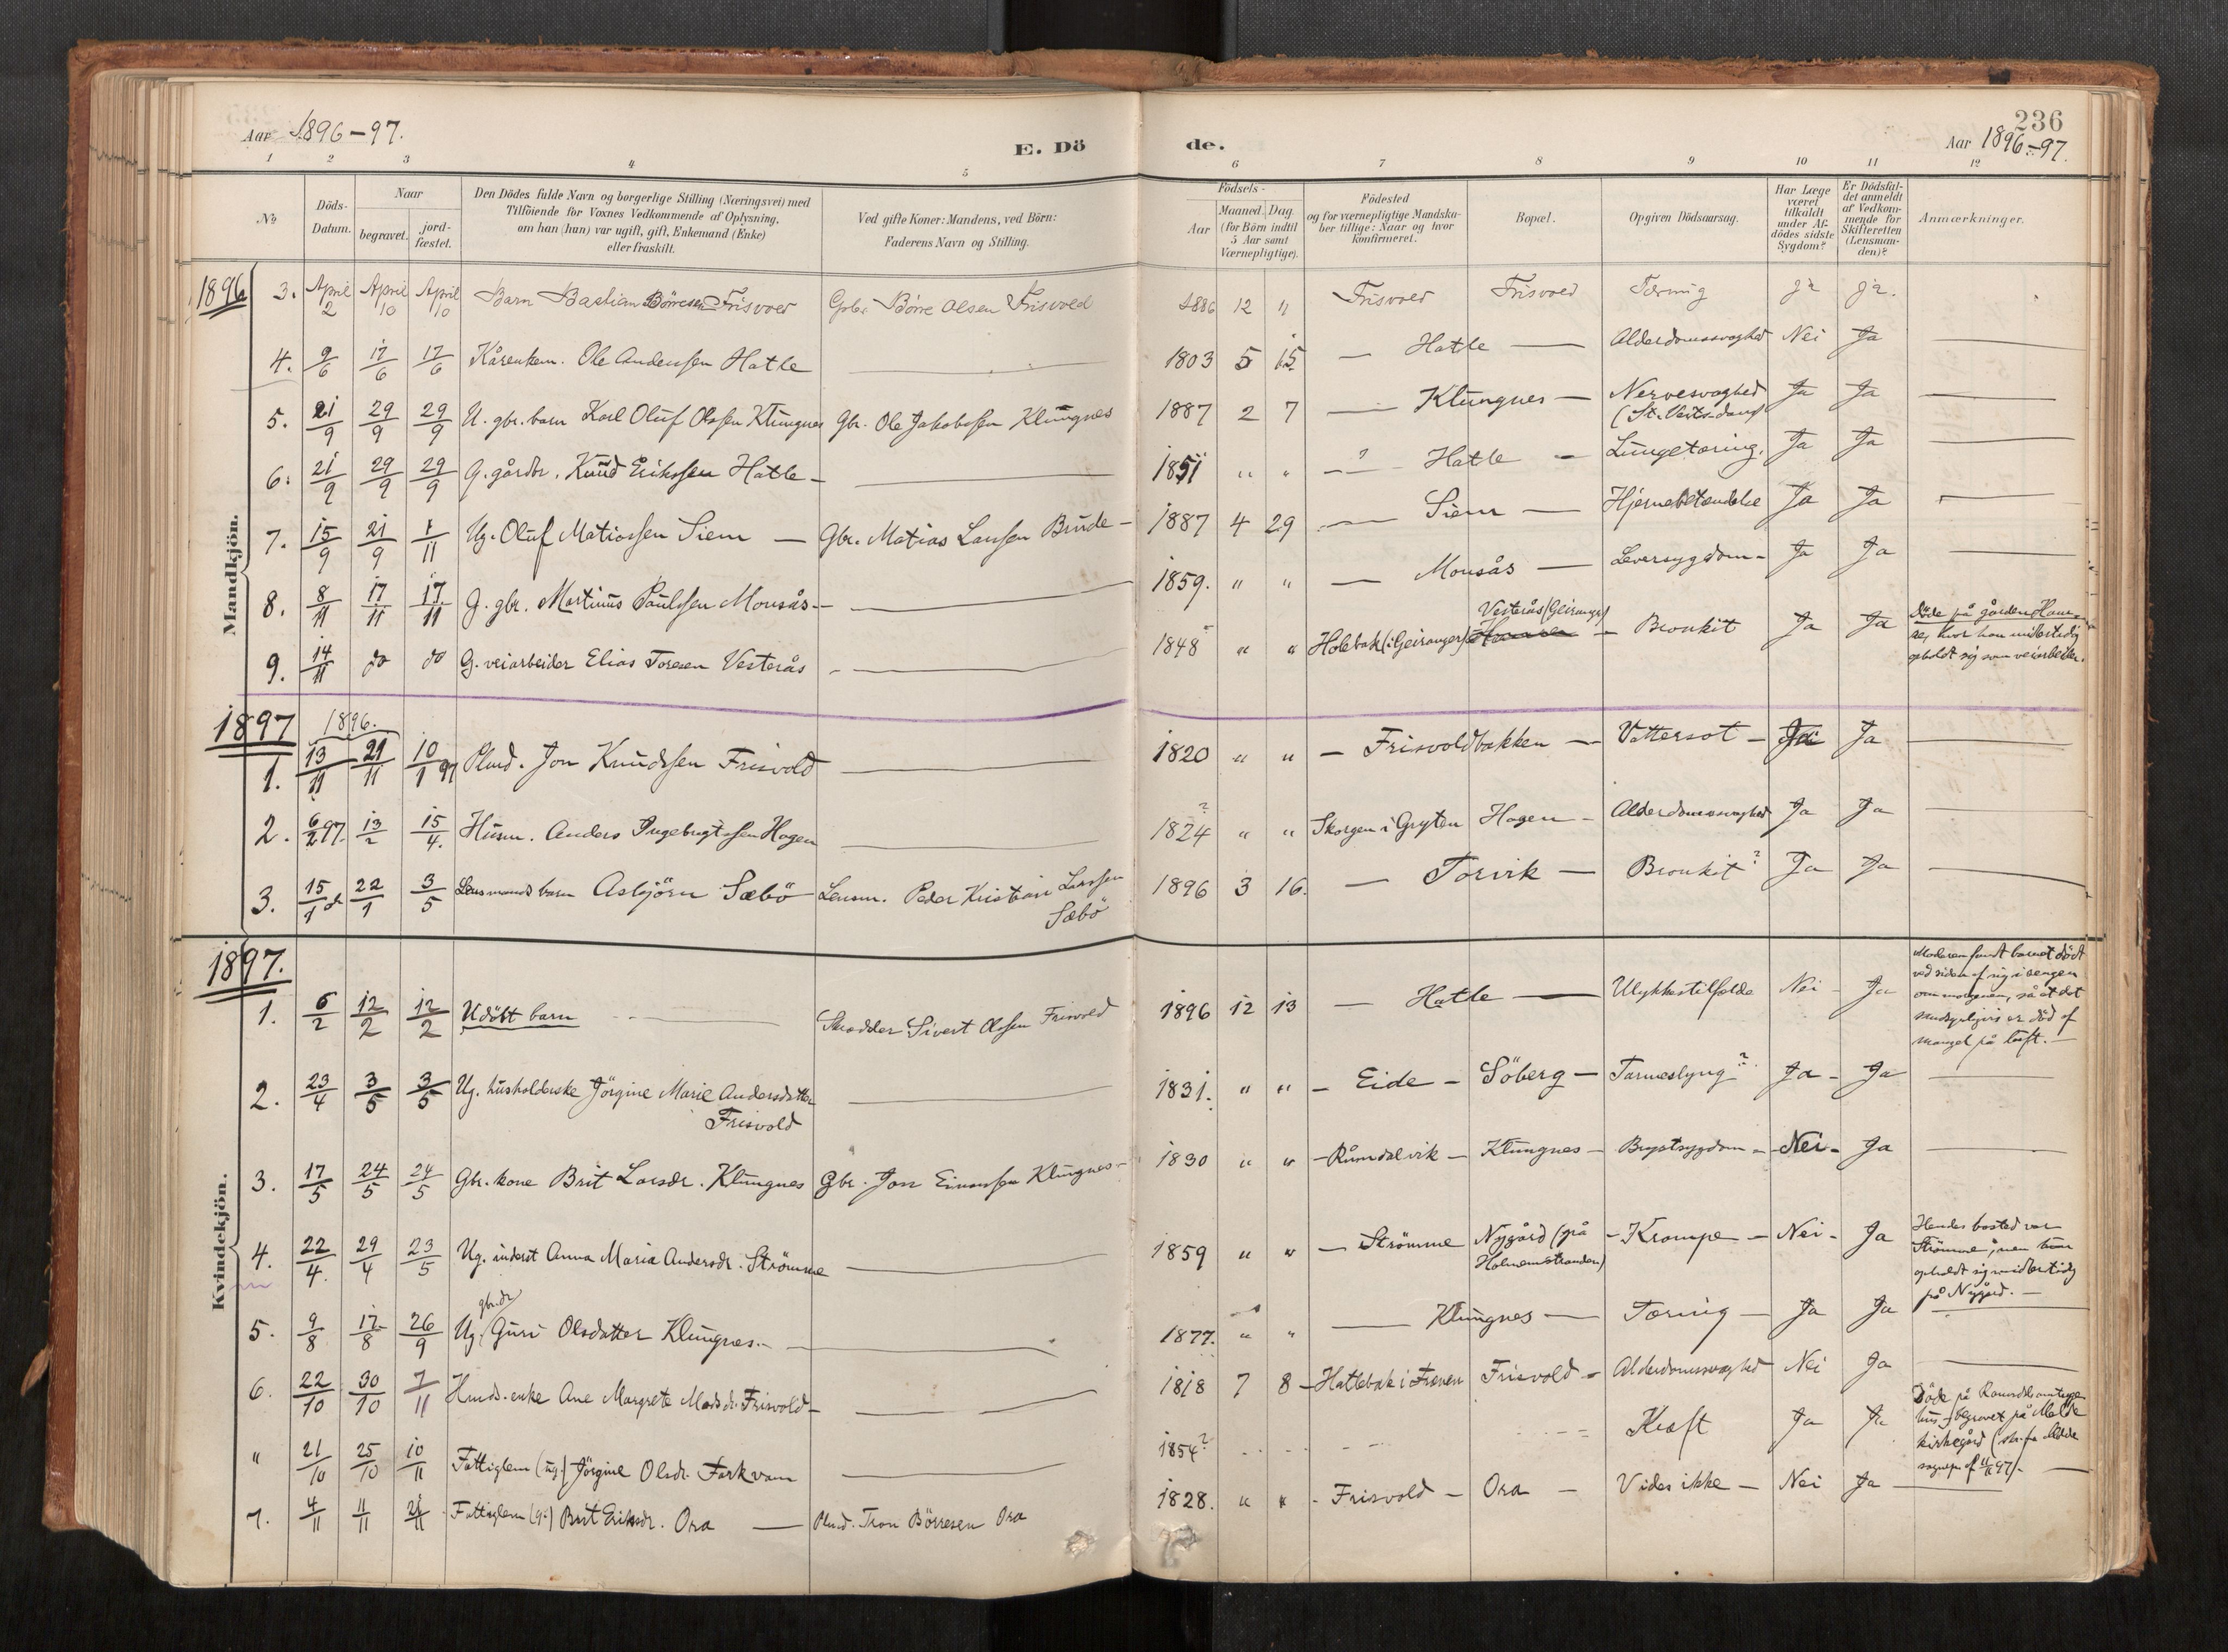 Aar 1896-97.
E. Dö
de.
236
Aar 1896-97.
1 2 3 4 5 6 7 8 9 10 11 12
No
Döds-Datum.
Naar
begravet.
jord-fæstet.
Den Dödes fulde Navn og borgerlige Stilling (Næringsvei) med
Tilföiende for Voxnes Vedkommende af Oplysning,
om han (hun) var ugift, gift, Enkemand (Enke)
eller fraskilt.
Ved gifte Koner: Mandens, ved Börn:
Faderens Navn og Stilling.
Födsels-
Aar
Maaned. Dag
(for Börn indtil
5 Aar samt
Værnepligtige).
Födested
og for værnepligtige Mandska-
ber tillige: Naar og hvor
konfirmeret.
Bopæl.
Opgiven Dödsaarsag.
Har Læge
været
tilkaldt
under Af-
dödes sidste
Sygdom?
Er Dödsfal-
det anmeldt
af Vedkom-
mende for
Skifteretten
(Lensman-
den)?
Anmærkninger.
Mandkjön.
1896 3. April 2 April 10 April 10 Barn Bastian Börresen Frisvold Gbr. Börre Olsen Frisvold 1886 12 11 Frisvold Frisvold Tæring ja ja.
4. 9/6 17/6 17/6 Kårenkem. Ole Anderssen Hatle — 1803 5 15 — Hatle — Alderdomssvaghed Nei Ja —
5. 21/9 29/9 29/9 U. gbr. barn Karl Oluf Olsssen Klungnes Gbr. Ole Jakobssen Klungnes 1887 2 7 — Klungnes — Nervesvaghed (St. Veits-dans) Ja Ja —
6. 21/9 29/9 29/9 G. gårdbr. Knud Erikssen Hatle — 1851 " " — ? Hatle — Lungetæring. Ja Ja —
7. 15/9 21/9 1/11 Ug. Oluf Matiassen Siem — Gbr. Matias Larssen Brude — 1887 4 29 — Siem — Hjernebetændelse Ja Ja —
8. 8/11 17/11 17/11 G. gbr. Martinus Paulssen Monsås — 1859. " " — Monsås — Leversygdom — Ja Ja —
9. 14/11 do do G. veiarbeider Elias Toresen Vesterås — 1848 " " Holebak (i Geiranger) Vesterås (Geiranger) — Bronkit Ja Ja Döde på gården Han-
se, hvor han midlertidig
opholdt sig som veiarbeider.
1897 1896.
1. 13/11 21/11 10/1 97 Plmd. Jon Knudssen Frisvold — 1820 " " — Frisvoldbakken — Vattersot — Ja Ja —
2. 6/2 97. 13/2 15/4. Husm. Anders Ingebrigtssen Hagen — 1824 ? " " Skorgen i Gryten Hagen — Alderdomssvaghed Ja Ja —
3. 15/1 d 22/1 3/5 Lensmands barn Asbjörn Sæbö Lensm. Peder Kristian Larssen Sæbö 1896 3 16. — Torvik — Bronkit? Ja Ja —
Kvindekjön.
1897.
1. 6/2 12/2 12/2 Udöbt barn — Skrædder Sivert Olssen Frisvold 1896 12 13 — Hatle — Ulykkestilfælde Nei — Ja Moderen fandt barnet dödt
ved siden af sig i sengen
om morgenen, så at det
sandsynligvis er död af
mangel på luft. —
2. 23/4 3/5 3/5 Ug. husholderske Jörgine Marie Andersdatter Frisvold — 1831. " " — Eide — Söberg — Tarmeslyng? Ja — Ja —
3. 17/5 24/5 24/5 Gbr. kone Brit Larsdr. Klungnes Gbr. Jon Einarssen Klungnes — 1830 " " — Råmdalvik — Klungnes — Brystsygdom — Nei — Ja —
4. 22/4. 29/4 23/5 Ug. inderst Anna Maria Andersdr. Strömme — 1859 " " — Strömme Nygård (på Holmemstranden) — Krampe — Nei — Ja Hendes bosted var
Strömme, men hun
opholdt sig midlertidig
på Nygård. —
5. 9/8 17/8 26/9 Ug. gbr.dr Guri Olsdatter Klungnes. — 1877. " " — Klungnes — Tæring — Ja Ja —
6. 22/10 30/10 7/11 Hmds. enke Ane Margrete Madsdr. Frisvold — 1818 7 8 — Hatlebak i Frænen Frisvold — Alderdomssvaghed Nei Ja —
" 21/10 25/10 10/11 Fattiglem (ug.) Jörgine Olsdr. Farkvam — 1854? Kræft Ja Ja Döde på Romsdals amtssyge-
hus — begravet på Molde
kirkegård (skr. fra Molde
sognepr. af 11/11 97). —
7. 4/11 11/11 21/11 Fattiglem (g.) Brit Eriksdr. Ora — Plmd. Tron Börresen Ora 1828. " " — Frisvold — Ora — Vides ikke — Nei Ja —